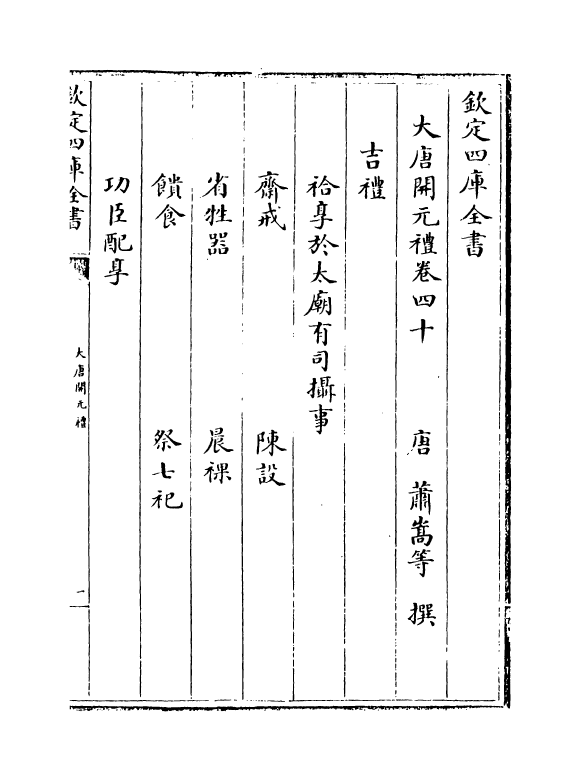 欽定四庫全書
大唐開元禮卷四十 唐 蕭嵩等 撰
吉禮
祫享於太廟有司攝事
齋戒 陳設
省牲器 晨祼
饋食 祭七祀
功臣配享
欽定四庫全書 大唐開元禮 一